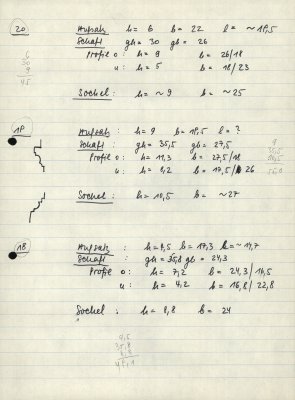 20 Aufsatz h = 6 b = 22 l = ~18,5
Schaft gh = 30 gb = 26
Profil o: h = 9 b = 26/18
u: h = 5 b = 18/23
6
30
9
45
Sockel: h = ~9 b = ~25
19 Aufsatz: h = 9 b = 18,5 l = ?
Schaft: gh = 35,5 gb = 27,5
Profil o: h = 11,3 b = 27,5/18
u: h = 8,2 b = 17,5/26
9
35,5
Sockel: h = 10,5 b = ~27
18 Aufsatz: h = 4,5 b = 17,3 l = ~14,7
Schaft: gh = 35,8 gb = 24,3
Profil o: h = 7,2 b = 24,3/16,5
u: h = 4,2 b = 16,8/22,8
Sockel: h = 8,8 b = 24
4,5
35,8
8,8
49,1